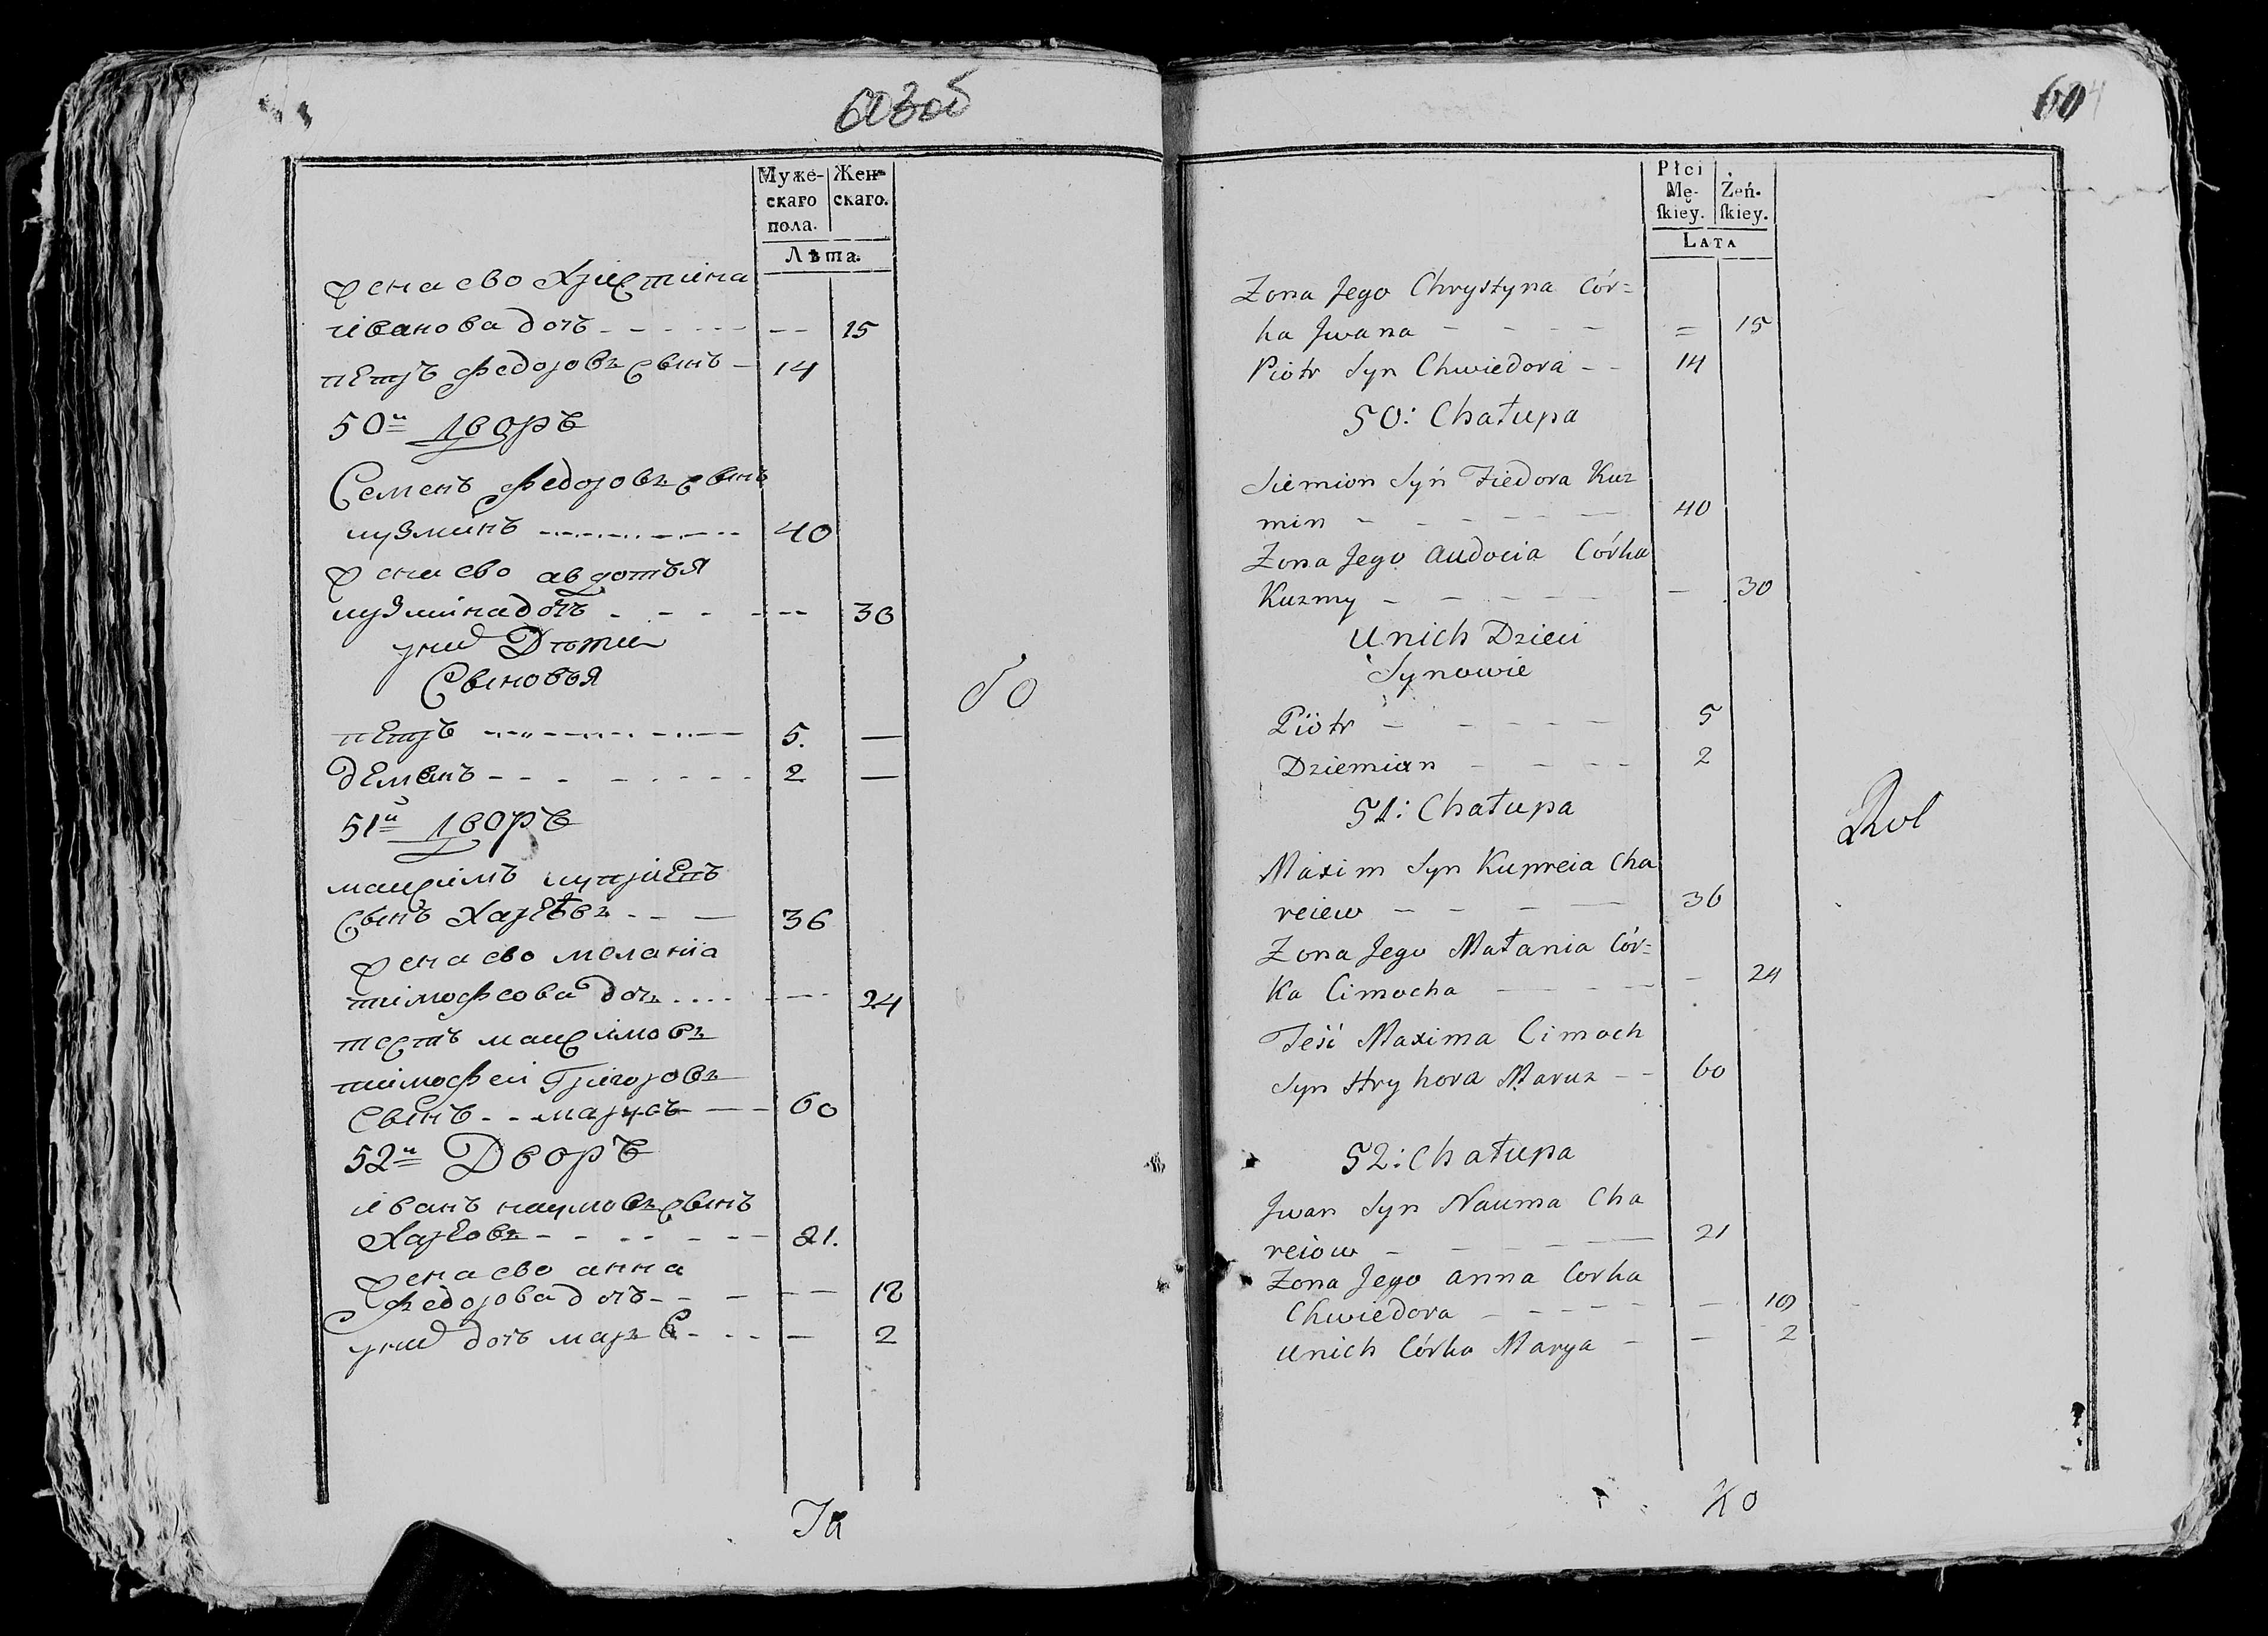 603об
Муже-
скаго
пола.
Жен-
скаго.
Лѣта.
жена ево Христина
иванова дочь - - - - - - - 15
петръ федоровъ сынъ - 14
50й дворъ
Семенъ федоровъ сынъ
кузминъ - - - - - - - - 40
жена ево авдотья
кузмина дочь - - - - - - 30
у них Дѣти
Сыновья
петръ - - - - - - - - 5. —
демянъ - - - - - - - - 2 —
51й дворъ
максимъ купріевъ
сынъ Харѣевъ - - — 36
жена ево меланиа
тимофеова дочь - - - - - - - 24
тесть максимовъ
тимофей Григоровъ
сынъ - - марусъ - — - 60
52й Дворъ
иванъ наумовъ сынъ
Харѣовъ - - - - - - - 21.
жена ево анна
федорова дочь - - - - - 18
у них дочь - - - — 2
бо
Ја
604
Płci
Mę-
ſkiey.
Żeń-
ſkiey.
LATA
Zona Jego Chrystyna Cór=
ka Jwana - - - - = 15
Piotr Syn Chwiedora - - 14
50: Chałupa
Siemion Syn Fiedora Kuz
min - - - - - — 40
Zona Jego Audocia Córka
Kuzmy - - - - - — 30
Unich Dzieci
Synowie
Piotr - - - - - - 5
Dziemian - - - - 2
51: Chałupa
Maxim Syn Kupreia Cha
reiew - - - — 36
Zona Jego Małania Cór=
Ka Cimocha — - - - - 24
Teść Maxima Cimoch
Syn Hryhora Maruz - - 60
52: Chałupa
Jwan Syn Nauma Cha
reiow - - - - — 21
Zona Jego Anna Corka
Chwiedora - - - - - — 18
Unich Córka Marya - — 2
Rol
Ko